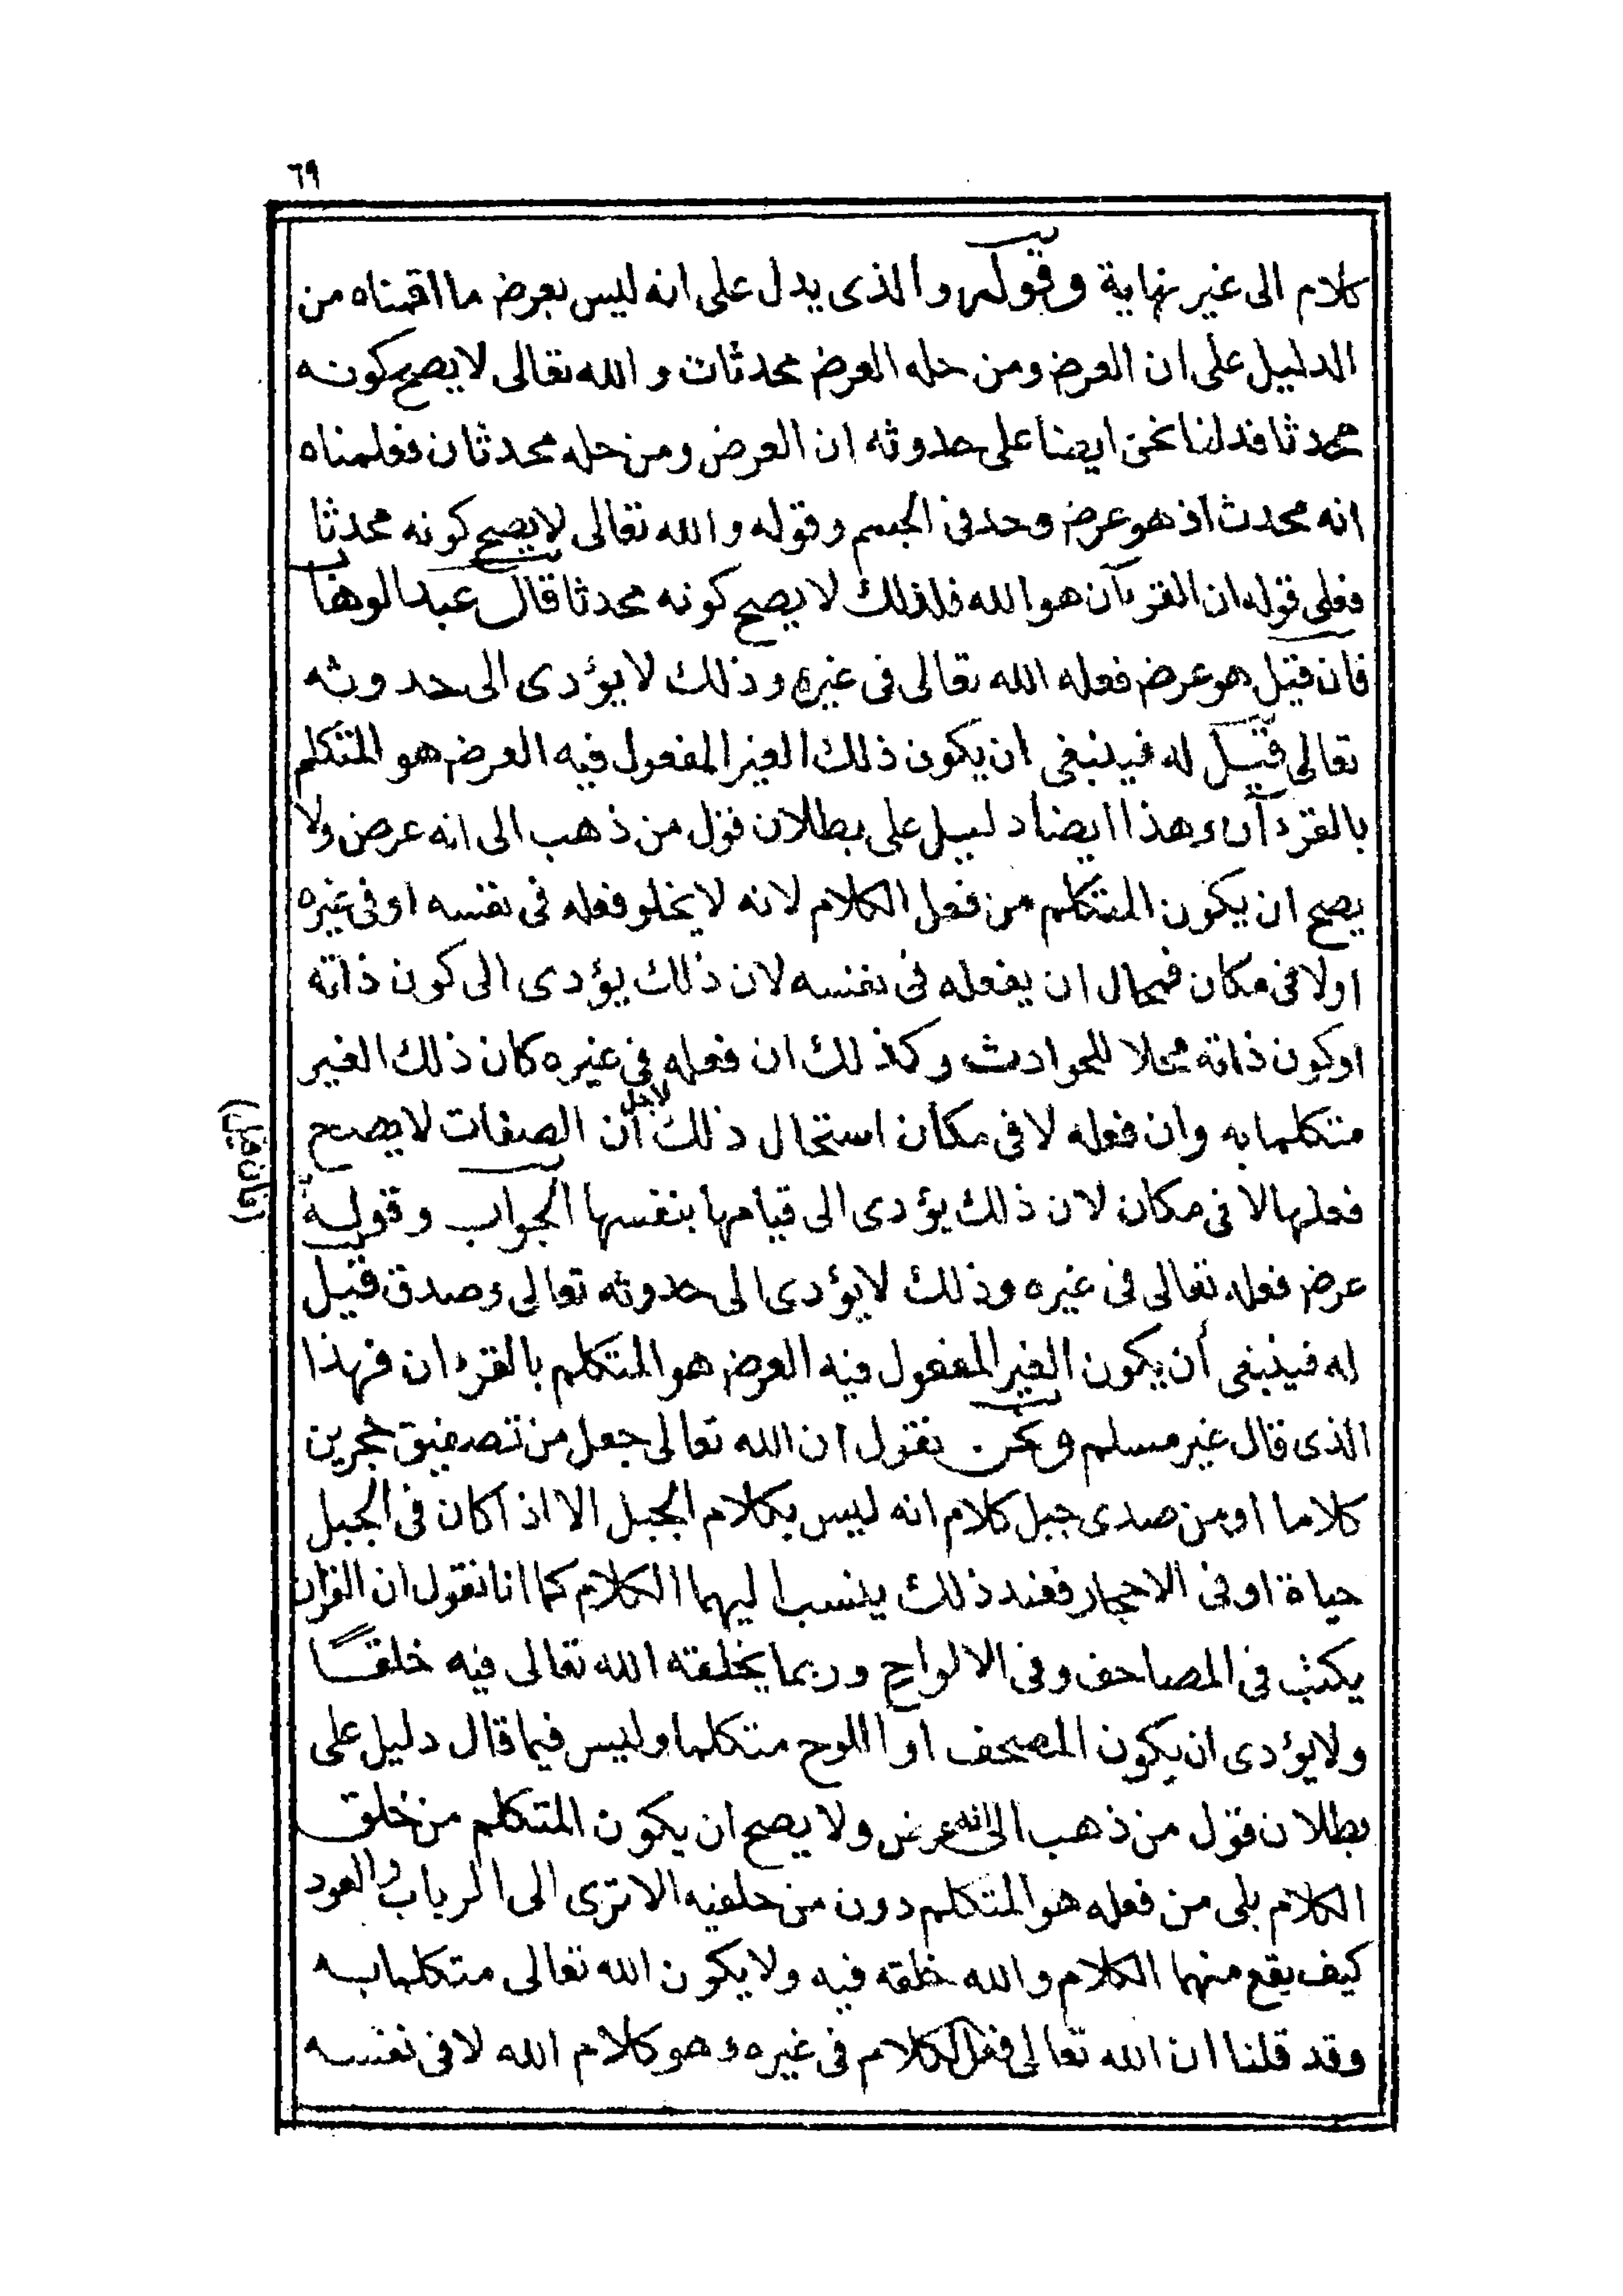 ٦٩
كلام الى غير نهاية وقوله والذى يدل على انه ليس بعرض ما اقمناه من
الدليل على ان العرض ومن حله العرض محدثان والله تعالى لا يصح كونه
محدثا فدلنا نحن ايضا على حدوثه ان العرض ومن حله محدثان فعلمناه
انه محدث اذ هو عرض وحد فى الجسم وقوله والله تعالى لا يصح كونه محدثا
فعلى قوله ان القرءآن هو الله فلذلك لا يصح كونه محدثا قال عبد الوهاب
فان قيل هو عرض فعله الله تعالى فى غيره وذلك لا يؤدى الى حدوثه
تعالى قيل له فينبغى ان يكون ذلك الغير المفعول فيه العرض هو المتكلم
بالقرءآن وهذا ايضا دليل على بطلان قول من ذهب الى انه عرض ولا
يصح ان يكون المتكلم من فعل الكلام لانه لا يخلو فعله فى نفسه او فى غيره
اولا فى مكان فمحال ان يفعله فى نفسه لان ذلك يؤدى الى كون ذاته
اوكون ذاته محلا للحوادث وكذلك ان فعله فى غيره كان ذلك الغير
متكلما به وان فعله لا فى مكان استحال ذلك لاجل أن الصفات لا يصح
فعلها الا فى مكان لان ذلك يؤدى الى قيامها بنفسها الجواب وقوله
(فان قيل)
عرض فعله تعالى فى غيره وذلك لا يؤدى الى حدوثه تعالى وصدق قيل
له فينبغى أن يكون الغير المفعول فيه العرض هو المتكلم بالقرءان فهذا
الذى قال غير مسلم ونحن نقول ان الله تعالى جعل من تصفيق حجرين
كلاما او من صدى جبل كلام انه ليس بكلام الجبل الا اذا كان فى الجبل
حياة او فى الاحجار فعند ذلك ينسب اليهما الكلام كما انا نقول ان القران
يكتب فى المصاحف وفى الالواح وربما يخلقه الله تعالى فيه خلقًا
ولا يؤدى ان يكون المصحف او اللوح متكلما وليس فيما قال دليل على
بطلان قول من ذهب الى انه عرض ولا يصح ان يكون المتكلم من خلق
الكلام بلى من فعله هو المتكلم دون من خلفيه الا ترى الى الرباب والعود
كيف يقع منهما الكلام والله خلقه فيه ولا يكون الله تعالى متكلما به
وقد قلنا ان الله تعالى فعل الكلام فى غيره وهو كلام الله لا فى نفسه